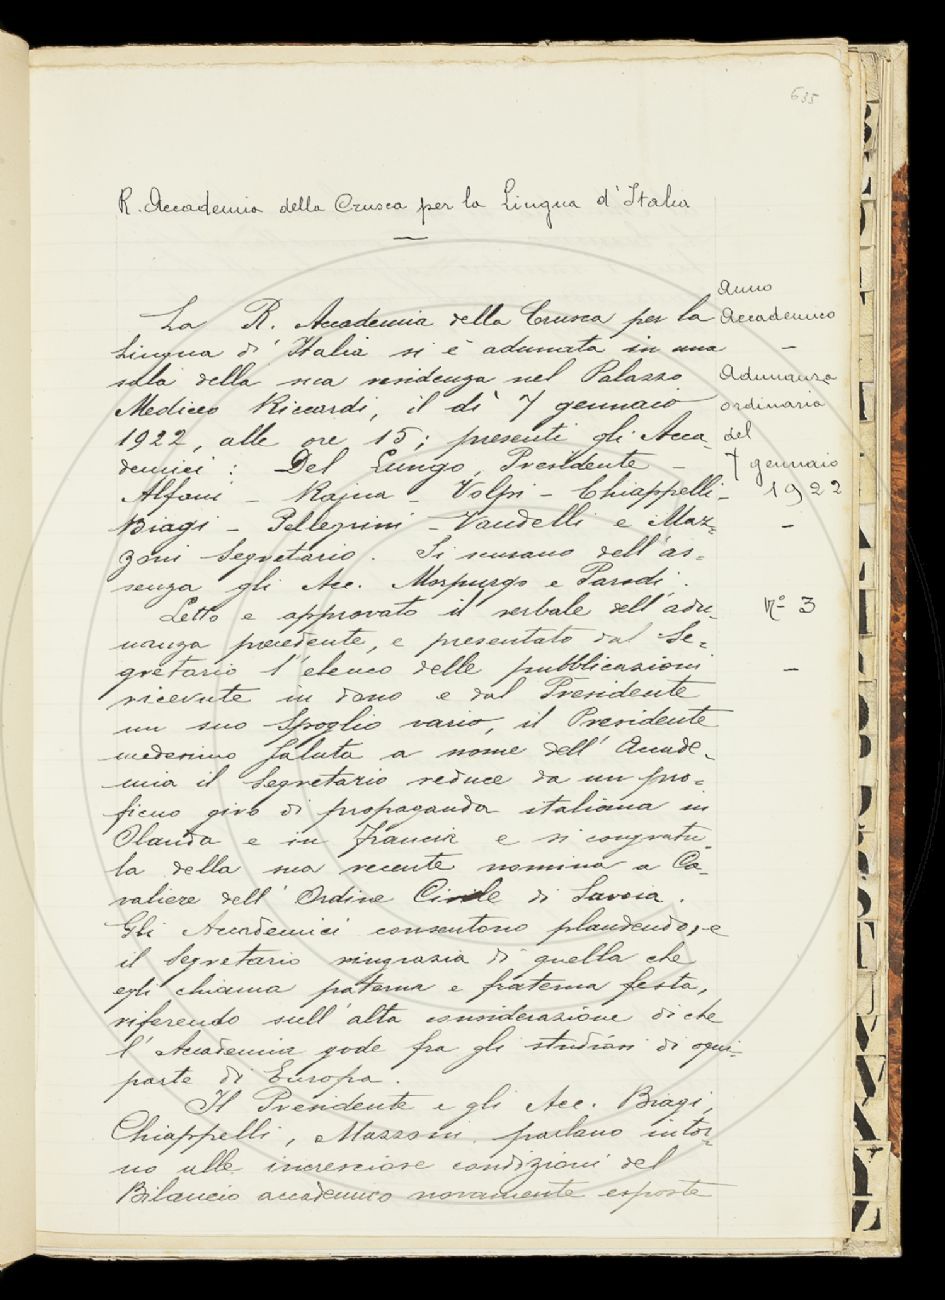 635
R. Accademia della Crusca per la Lingua d'Italia
La R. Accademia della Crusca per la
Lingua d'Italia si è adunata in una
sala della sua residenza nel Palazzo
Mediceo Riccardi, il dì 7 gennaio
1922, alle ore 15; presenti gli Acca-
demici: Del Lungo, Presidente -
Alfani - Rajna - Volpi - Chiappelli -
Biagi - Pellegrini - Vandelli e Maz=
zoni Segretario. Si scusano dell'as=
senza gli Acc. Morpurgo e Parodi.
Letto e approvato il verbale dell'adu-
nanza precedente, e presentato dal Se=
gretario l'elenco delle pubblicazioni
ricevute in dono e dal Presidente
un suo Spoglio vario, il Presidente
medesimo saluta a nome dell'Accade-
mia il Segretario reduce da un pro=
ficuo giro di propaganda italiana in
Olanda e in Francia e si congratu-
la della sua recente nomina a Ca-
valiere dell'Ordine Civile di Savoia.
Gli Accademici consentono plaudendo, e
il Segretario ringrazia di quella che
egli chiama paterna e fraterna festa,
riferendo sull'alta considerazione di che
l'Accademia gode fra gli studiosi di ogni
parte di Europa.
Il Presidente e gli Acc. Biagi,
Chiappelli, Mazzoni, parlano intor=
no alle incresciose condizioni del
Bilancio accademico novamente esposte
Anno
Accademico
-
Adunanza
ordinaria
del
7 gennaio
1922
-
Nº 3
-